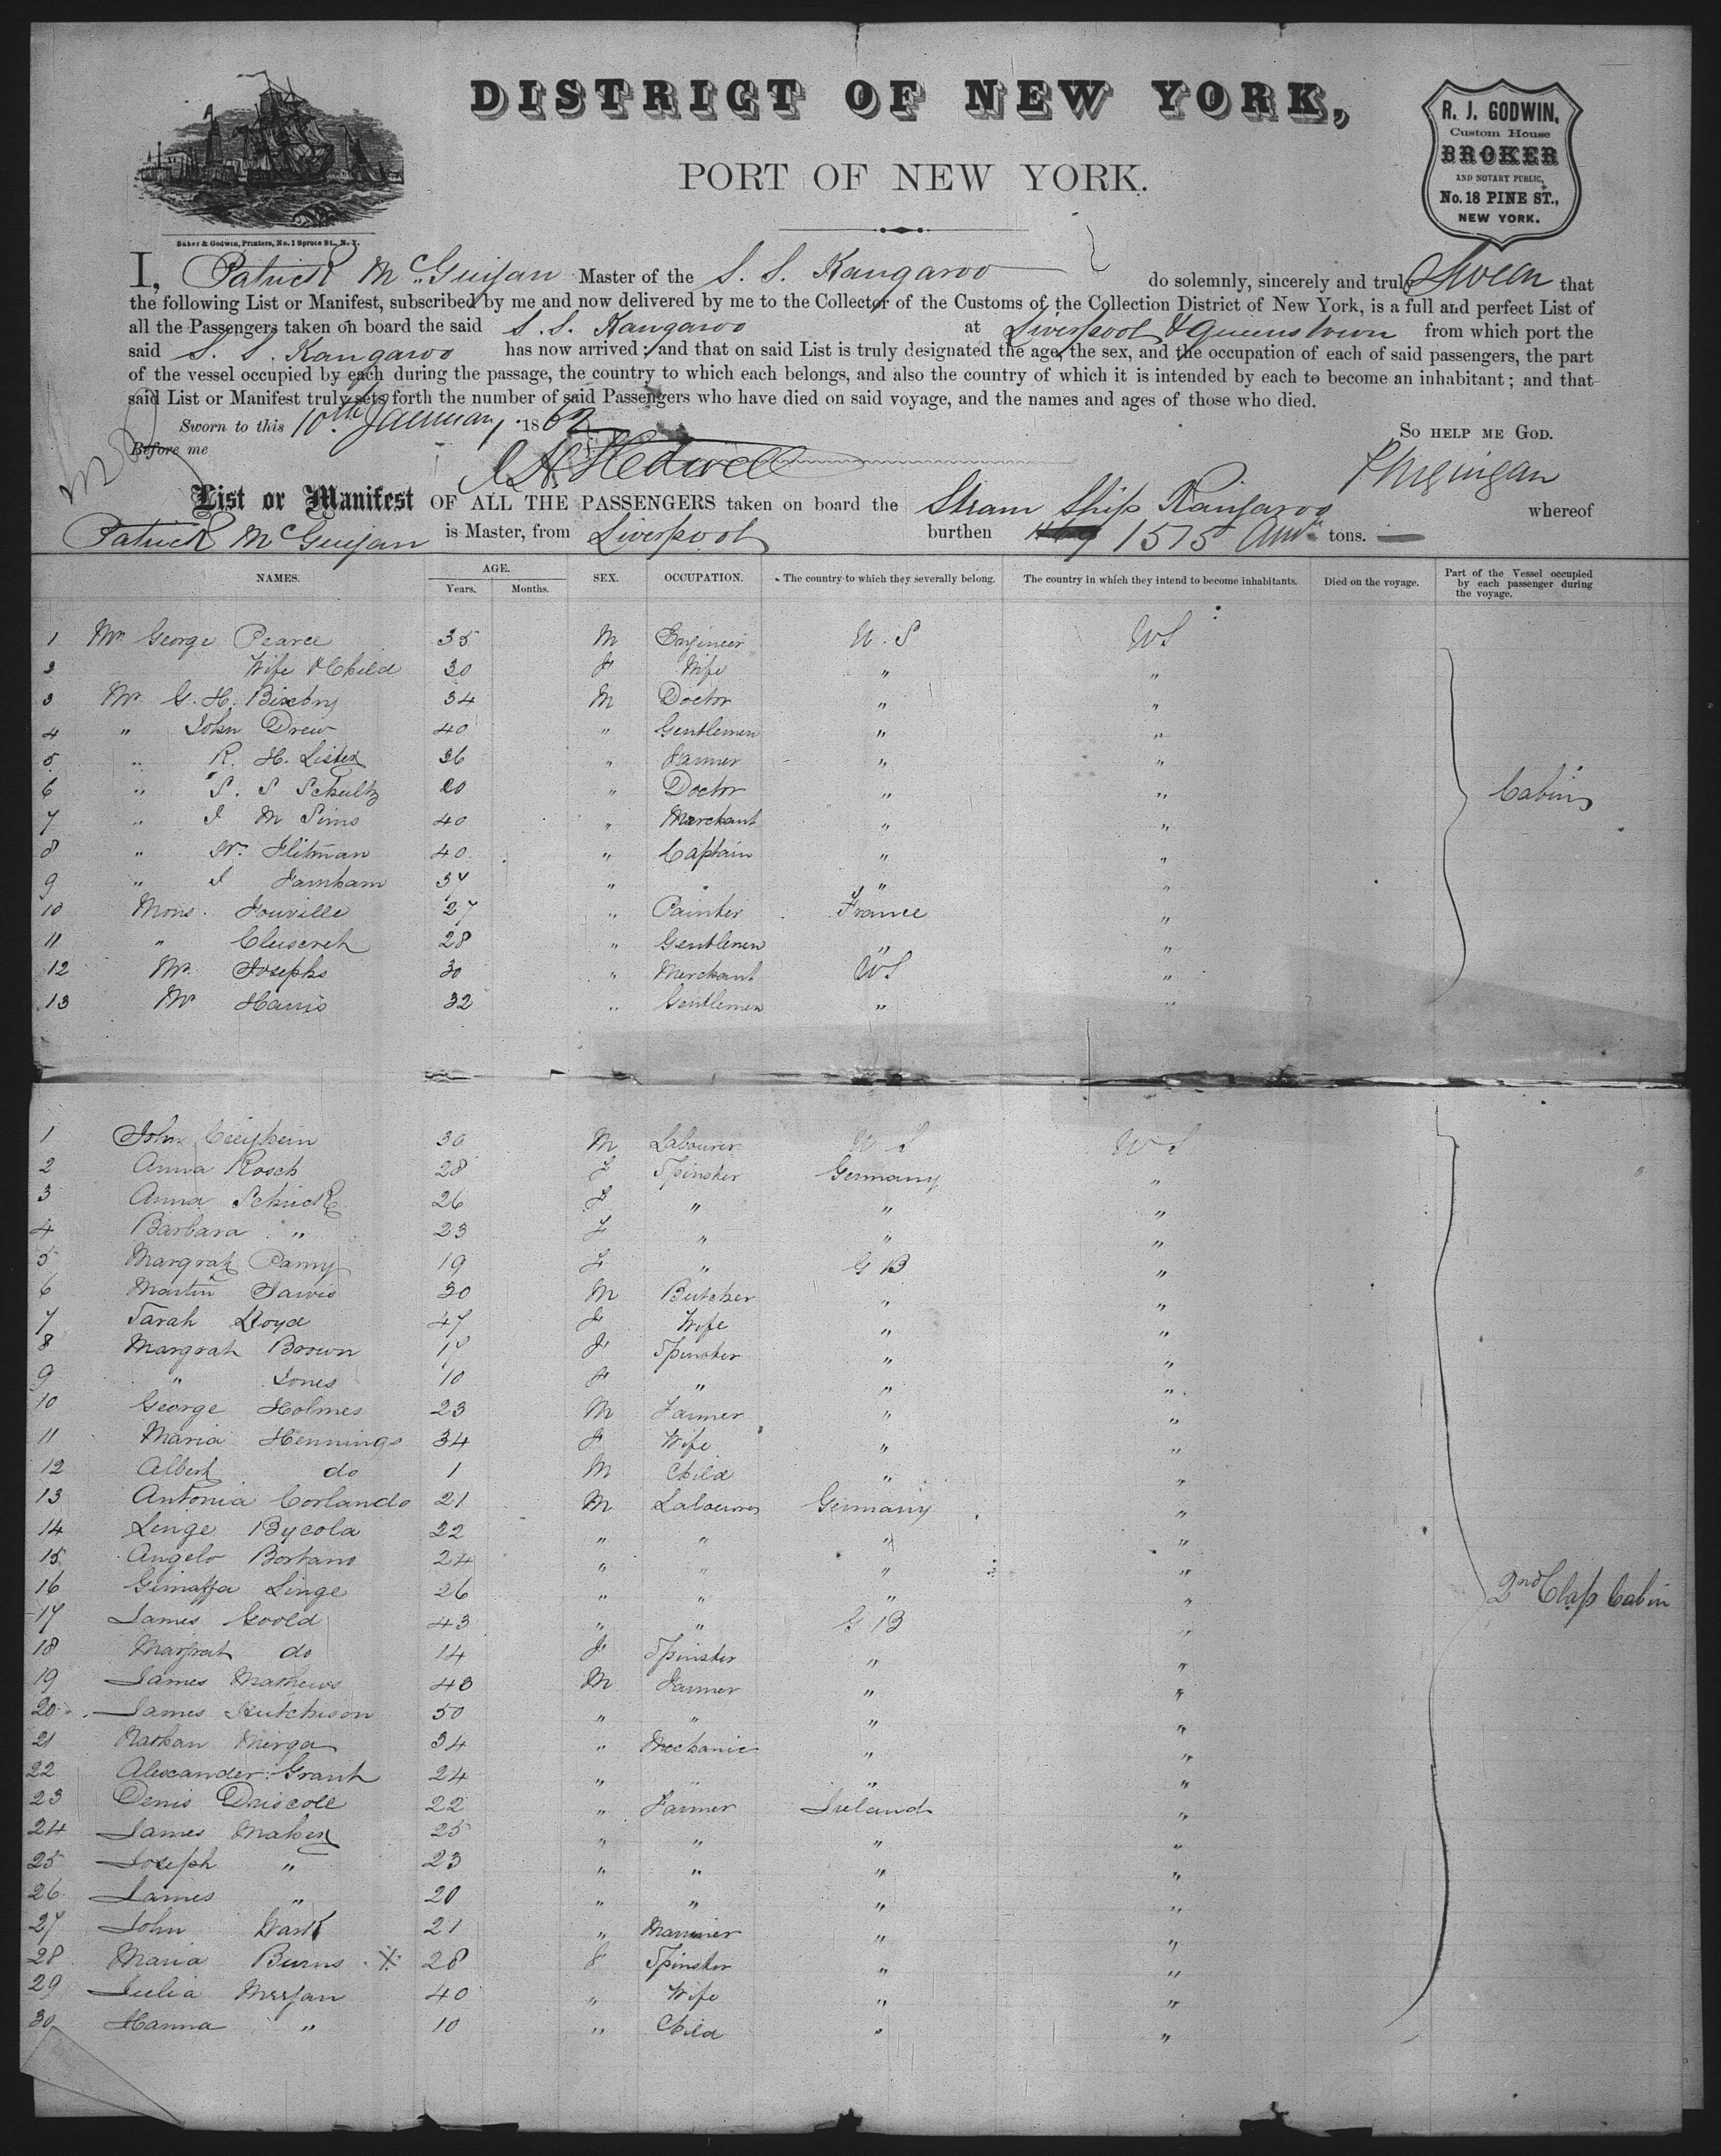 DISTRICT OF NEW YORK,
PORT OF NEW YORK.
R. J. GODWIN,
Custom House
BROKER
AND NOTARY PUBLIC,
No. 18 PINE ST.,
NEW YORK.
Baker & Godwin, Printers, No. 1 Spruce St., N. Y.
I, Patrick McGuigan Master of the S. S. Kangaroo do solemnly, sincerely and truly Swear that
the following List or Manifest, subscribed by me and now delivered by me to the Collector of the Customs of the Collection District of New York, is a full and perfect List of
all the Passengers taken on board the said S. S. Kangaroo at Liverpool & Queenstown from which port the
said S. S. Kangaroo has now arrived; and that on said List is truly designated the age, the sex, and the occupation of each of said passengers, the part
of the vessel occupied by each during the passage, the country to which each belongs, and also the country of which it is intended by each to become an inhabitant; and that
said List or Manifest truly sets forth the number of said Passengers who have died on said voyage, and the names and ages of those who died.
Sworn to this 10th January 1862 SO HELP ME GOD.
Before me
List or Manifest OF ALL THE PASSENGERS taken on board the Steam Ship Kangaroo whereof
Patrick McGuigan is Master, from Liverpool burthen 1575 tons.
NAMES. AGE. Years. Months. SEX. OCCUPATION. The country to which they severally belong. The country in which they intend to become inhabitants. Died on the voyage. Part of the Vessel occupied by each passenger during the voyage.
1 Mr George Pearce 35 M Engineer U. S US
2 Wife & Child 30 F Wife " "
3 Mr G. H. Bixby 34 M Doctor " "
4 " John Drew 40 " Gentlemen " "
5 " R. H. Lister 36 " Farmer " "
6 " S. S Schultz 20 " Doctor " " Cabin
7 " J M Sims 40 " Merchant " "
8 " W. Flitman 40 " Captain " "
9 " J Farnham 34 " " " "
10 Mons. Jouville 27 " Painter France "
11 " Cluseret 28 " Gentlemen " "
12 Mr Josephs 30 " Merchant US "
13 Mr Harris 32 " Gentlemen " "
1 John 30 M Labourer U S U S
2 Anna Rosch 28 F Spinster Germany "
3 Anna Schuck 26 F " " "
4 Barbara " 23 F " " "
5 Margrat 19 F " G B "
6 Martin Jarvis 30 M Butcher " "
7 Sarah Lloyd 47 F Wife " "
8 Margrat Brown 17 F Spinster " "
9 " Jones 10 F " " "
10 George Holmes 23 M Farmer " "
11 Maria Hennings 34 F Wife " "
12 Albert do 1 M Child " "
13 Antonia Corlando 21 M Labourer Germany "
14 Lenge Bycola 22 " " " "
15 Angelo Bortano 24 " " " "
16 Gimaffa Linge 26 " " " " 2nd Class Cabin
17 James Goold 43 " " G B "
18 Margrat do 14 F Spinster " "
19 James Mathews 43 M Farmer " "
20 James Hutchison 50 " " " "
21 Nathan Mirga 34 " Mechanic " "
22 Alexander Grant 24 " " " "
23 Denis Driscoll 22 " Farmer Ireland "
24 James Maher 25 " " " "
25 Joseph " 23 " " " "
26 James " 20 " " " "
27 John Wark 21 " Marriner " "
28 Maria Burns X 28 F Spinster " "
29 Julia Morgan 40 " Wife " "
30 Hanna " 10 " Child " "